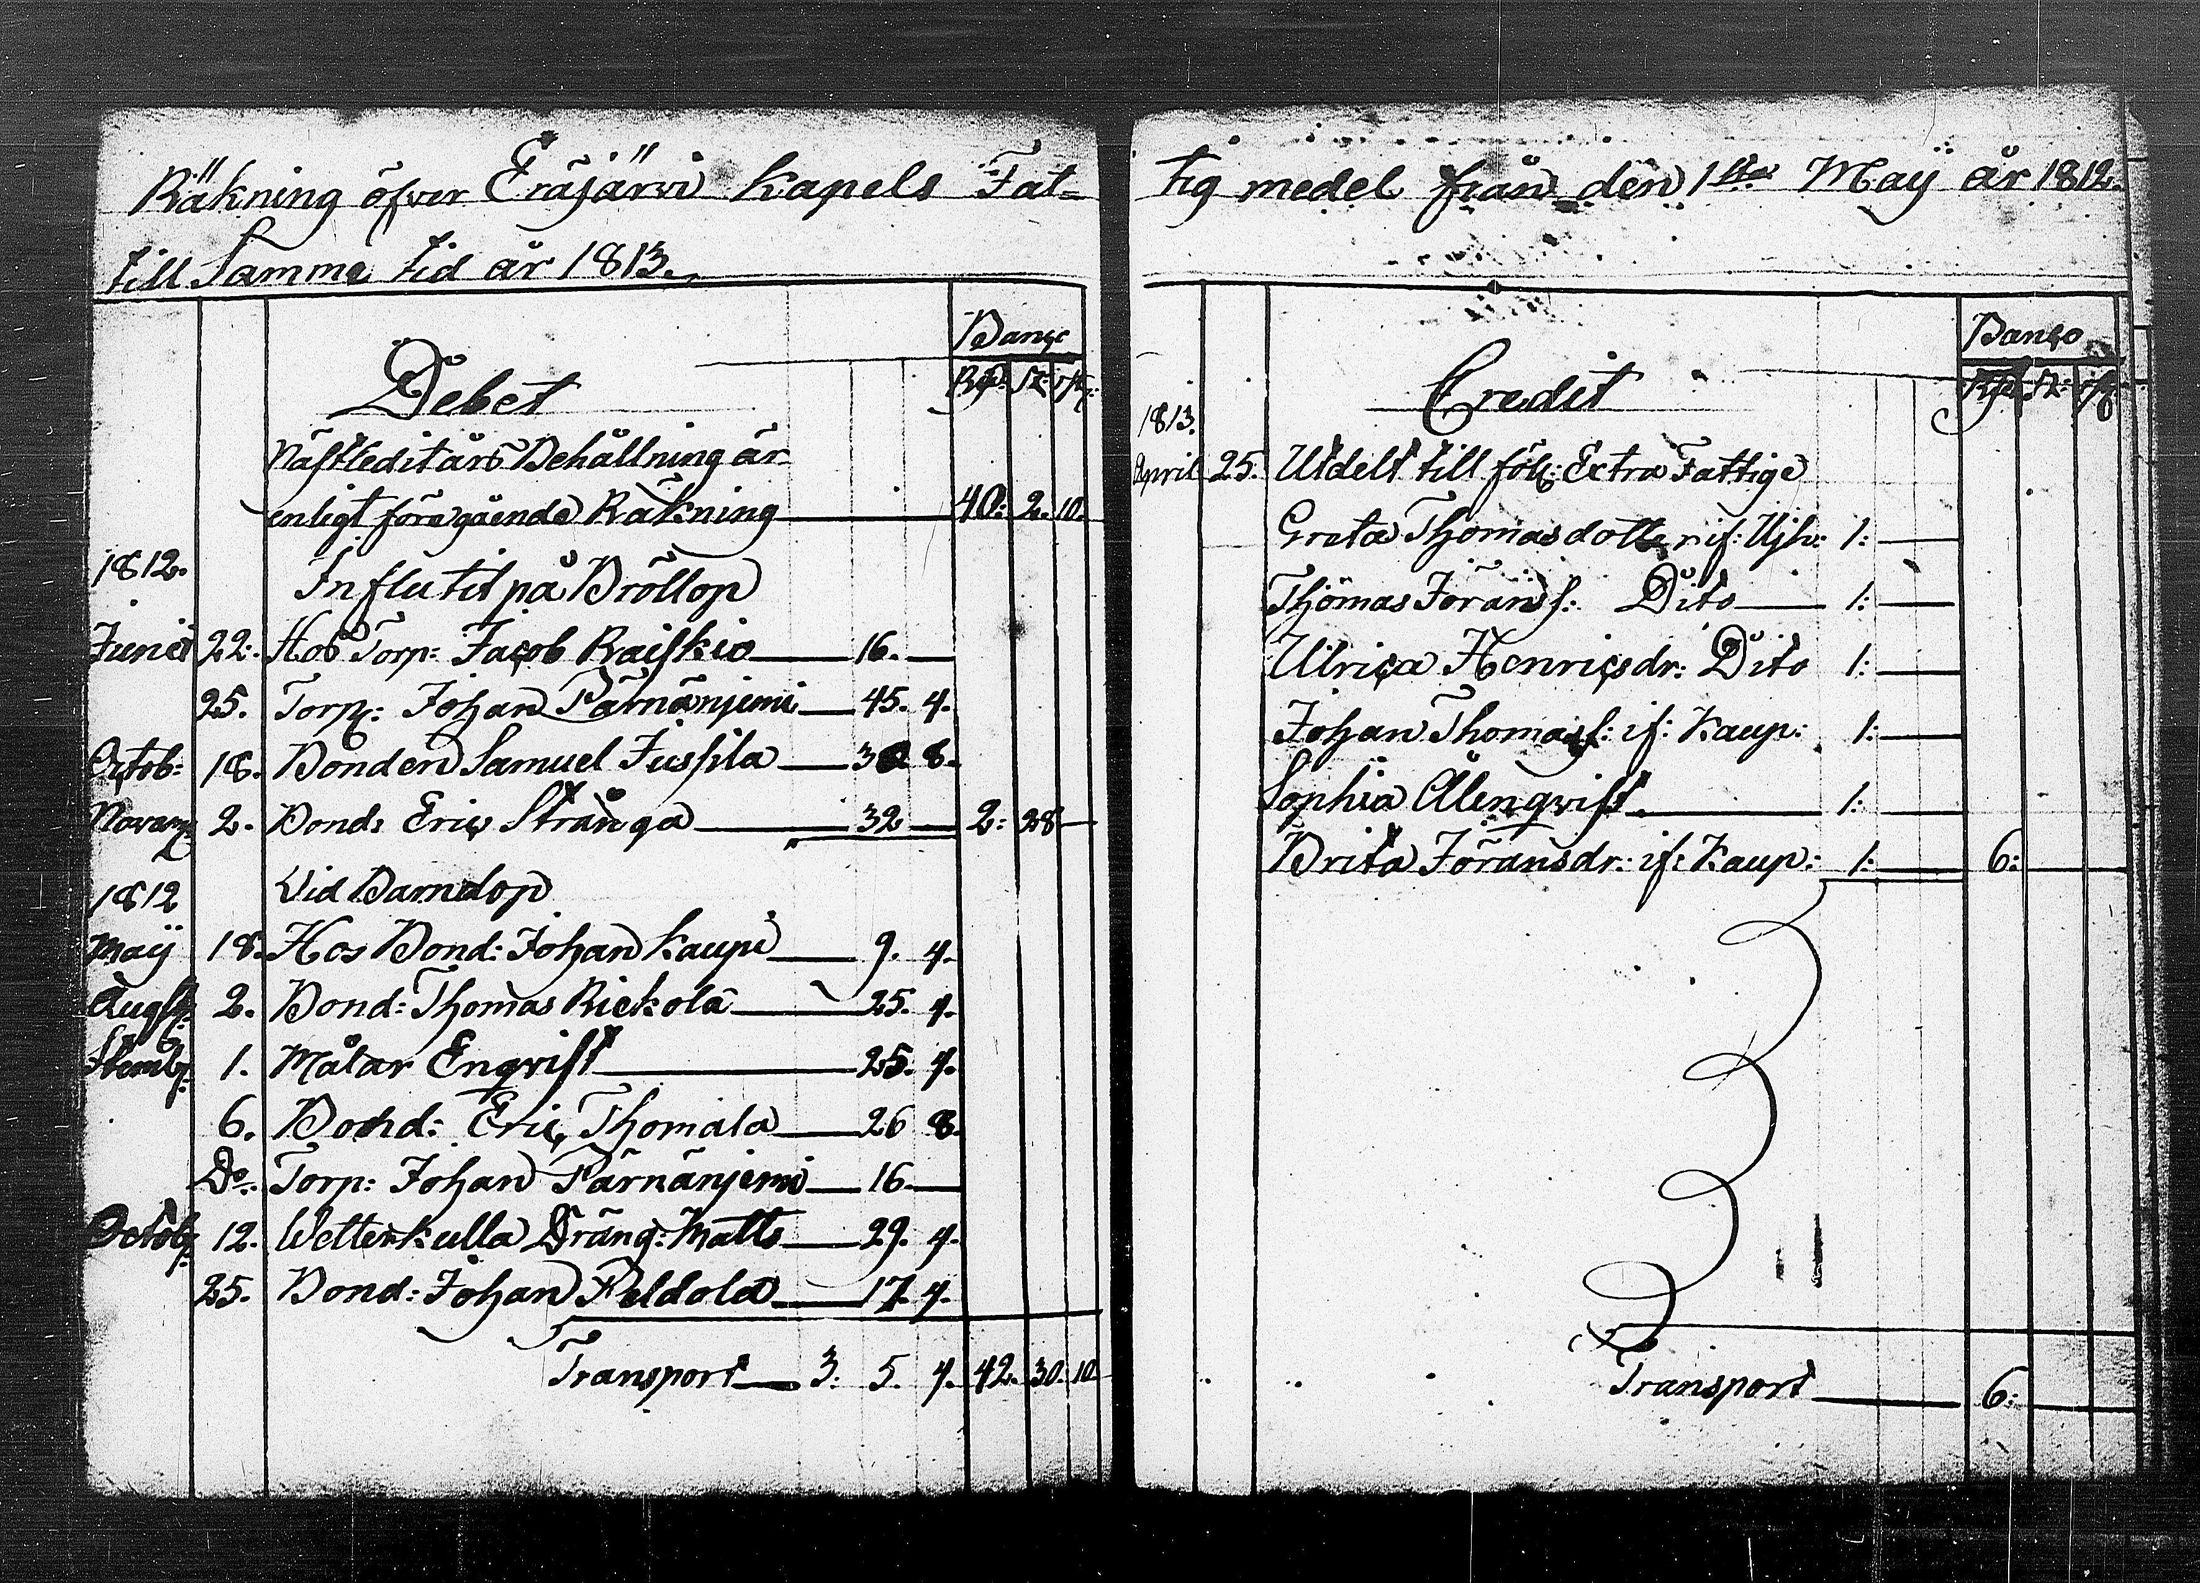 Räkning öfver Eräjärwi Kapels Fat-
till Samma tid år 1813.
Banco
Debet
Rdr: sk: rst:
Nästledit års Behållning är
enligt föregående Räkning 40: 2. 10.
1812. Influtit på Bröllop
Junii 22. Hos Torp: Jacob Raiskio 16.
25. Torp: Johan Pärnänjemi 45. 4.
Octob: 18. Bonden Samuel Jussila 30 8.
Novemb 2. Bond: Eric Strånga 32 2: 28
1812 Vid Barndop
Maÿ 18. Hos Bond: Johan Kaupi 9. 4.
Augst: 2. Bond: Thomas Rickola 25. 4.
1. Målar Enqvist 25. 4.
6. Bond: Eric Thomala 26 8.
Do. Torp: Johan Pärnänjemi 16
Octob 12. Wetterkulla Dräng: Matts 29. 4.
25. Bond: Johan Peldola 17. 4.
Transport 3. 5. 4. 42. 30. 10
tig medel från den 1sta Maÿ år 1812.
Banco
Credit
Rdr sk: rst
1813.
April 25. Utdelt till följ: Extra Fattige
Greta Thomasdotter if: Ujh: 1:
Thomas Jöransf: Dito 1:
Ulrica Henricsdr: Dito 1:
Johan Thomasf: if: Kaup: 1:
Sophia Alenqvist 1:
Brita Jöransdr: if: Kaup: 1: 6:
Transport 6: